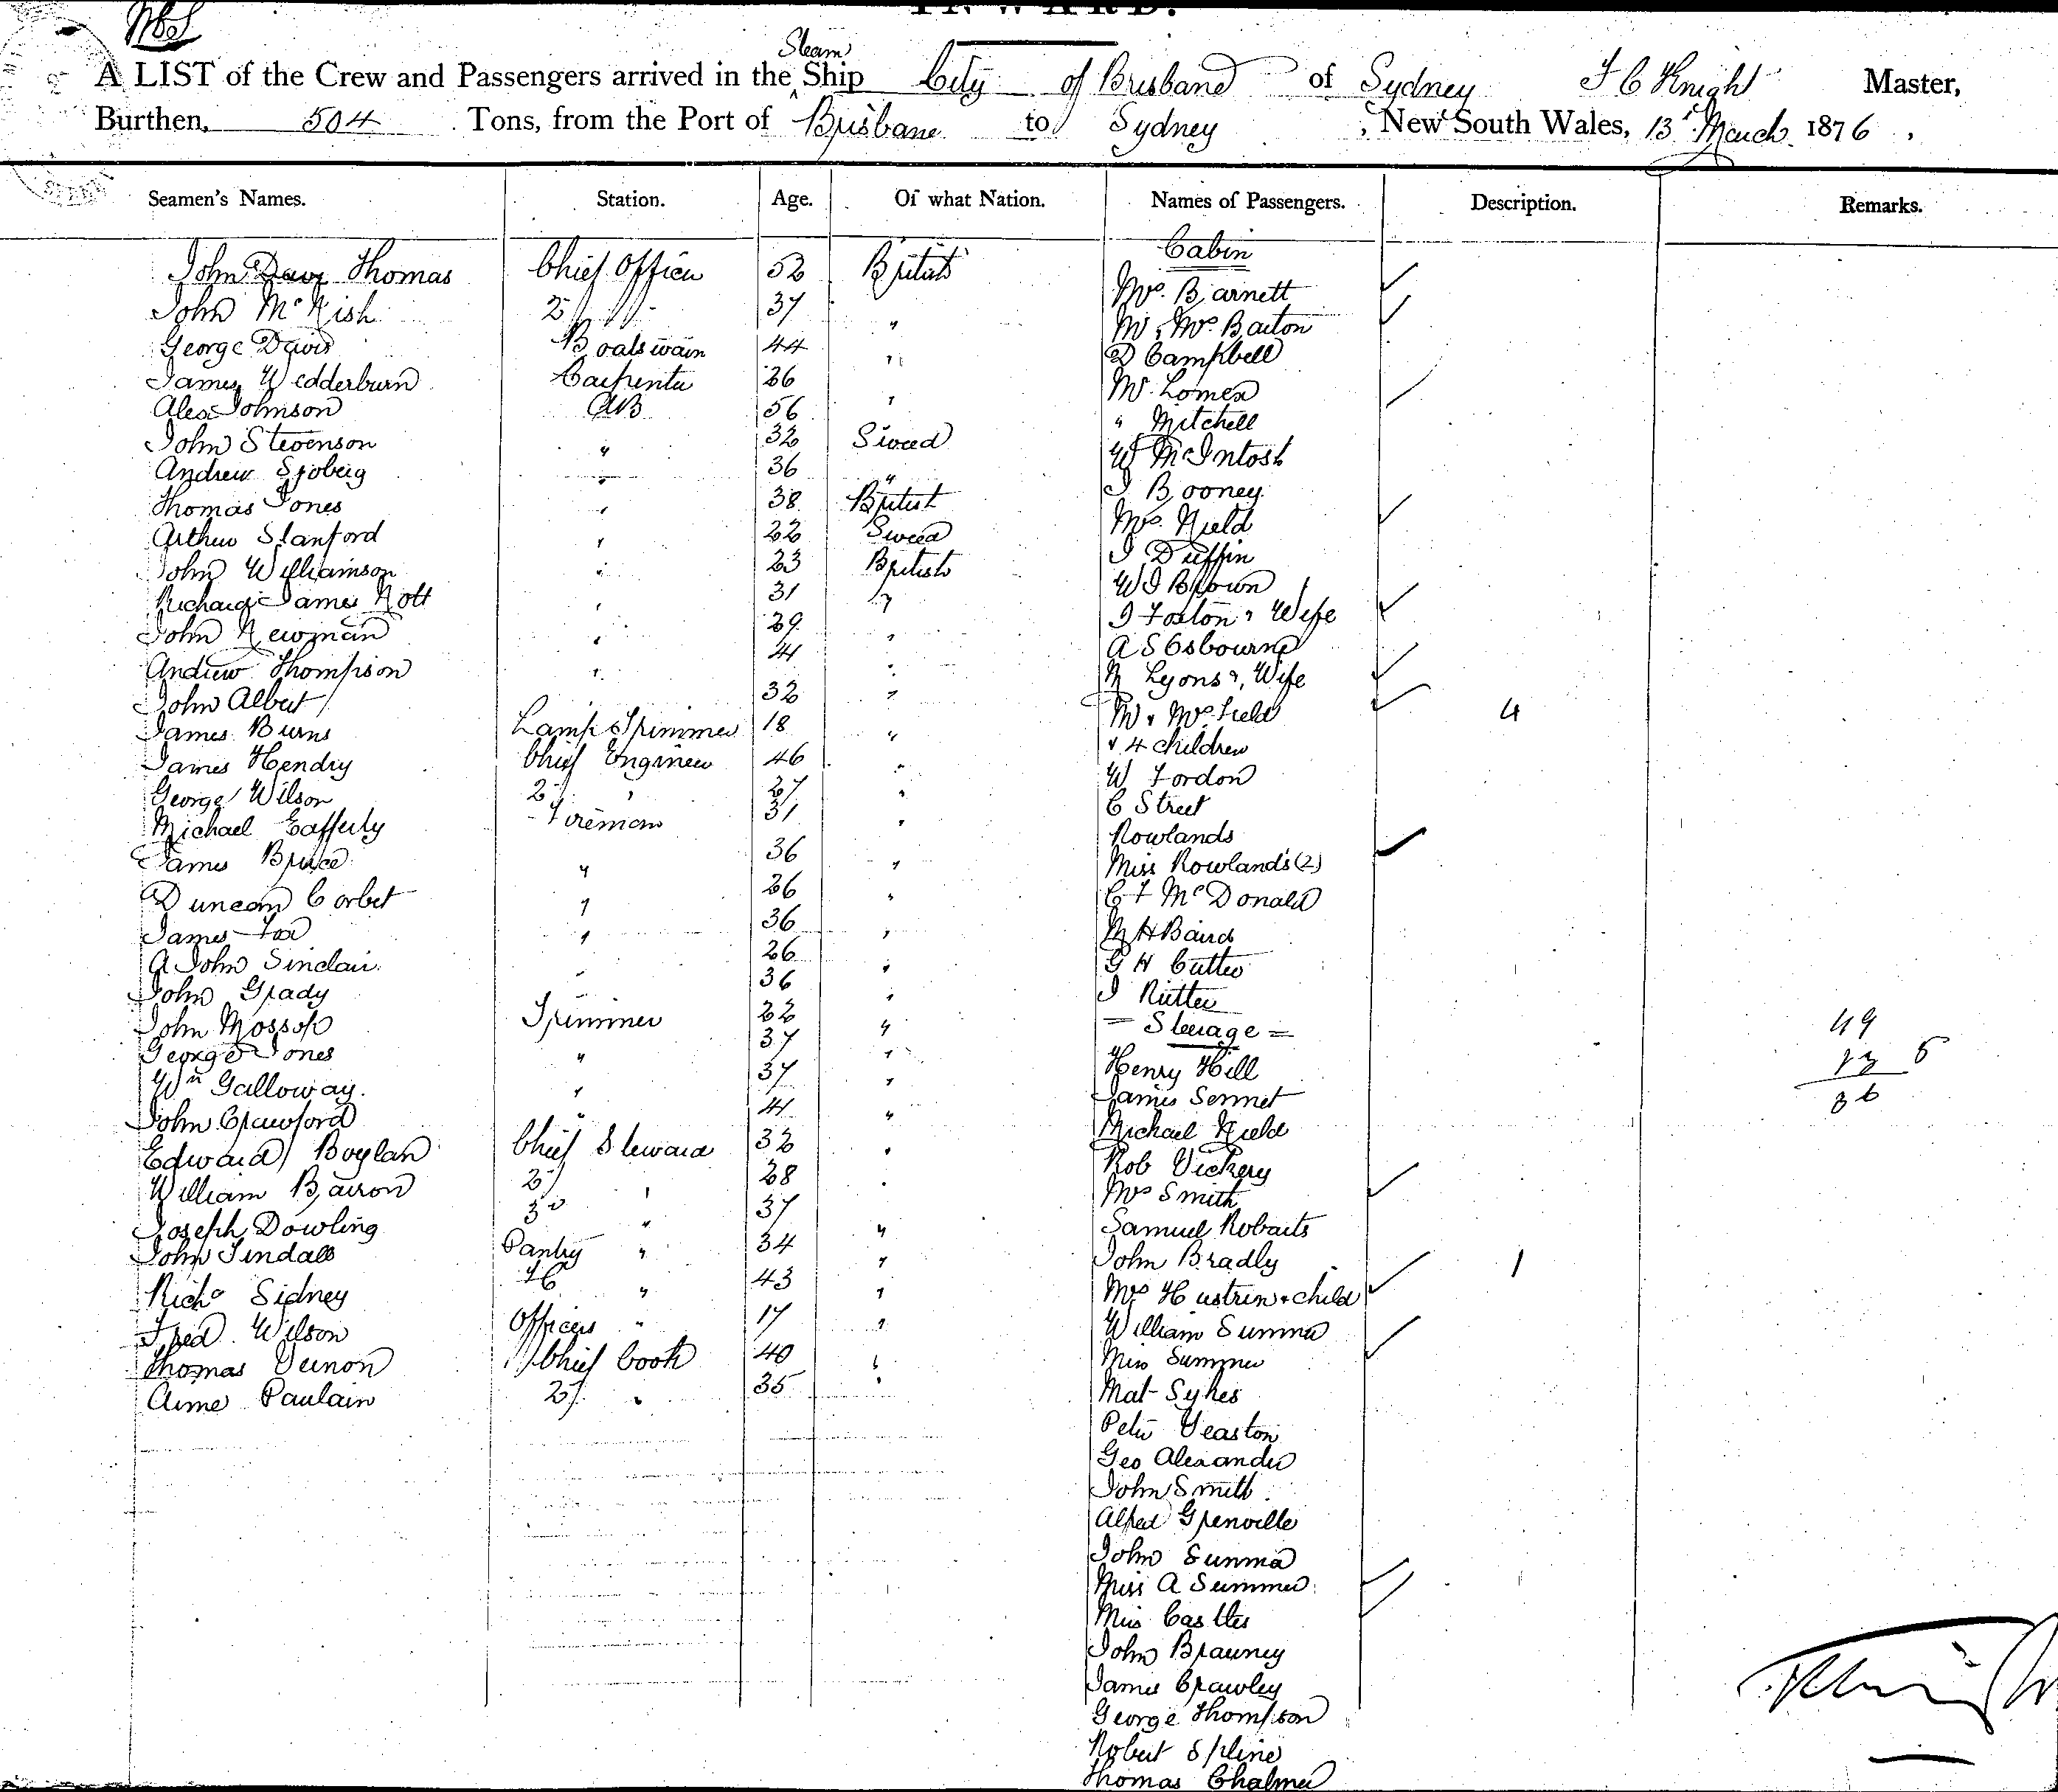 INWARD.
Steam
A LIST of the Crew and Passengers arrived in the Ship City of Brisbane of Sydney J C Knight Master,
Burthen, 504 Tons, from the Port of Brisbane to Sydney, New South Wales, 13 March 1876,
Seamen's Names. Station. Age. Of what Nation. Names of Passengers. Description. Remarks.
Cabin
John Davy Thomas Chief Officer 52 British
Mrs. Barnett
John McKish 2/ " 37 "
Mr & Mrs Barton
George Davis Boatswain 44 "
D Campbell
James Wedderburn Carpenter 26 "
Mr. Lomen
Alex Johnson AB 56
" Mitchell
John Stevenson " 32 Sweed
W McIntosh
Andrew Sjoberg " 36 "
J Booney
Thomas Jones " 38 British
Mrs. Nield
Arthur Stanford " 22 Sweed
J Duffin
John Williamson " 23 British
W J Brown
Richard James Nott " 31 "
J Foxton & Wife
John Newman " 29 "
A S Osbourne
Andrew Thompson " 41 "
M Lyons & Wife
John Albert 32 "
Mr & Mrs Field 4
James Burns Lamp Trimmer 18 "
& 4 children
James Hendry Chief Engineer 46 "
W Fordon
George Wilson 2/ " 27 "
C Street
Michael Cafferty Fireman 31 "
Rowlands
James Bruce " 36 "
Miss Rowlands (2)
Duncan Corbet " 26 "
C F McDonald
James Fox " 36 "
M H Baird
A John Sinclair " 26 "
G H Cutter
John Grady " 36 "
J Rutter
John Mossop Trimmer 22 "
= Steerage = 49
George Jones " 37 "
Henry Hill 13 5
Wm Galloway. " 37 "
James Sennet 36
John Crawford " 41 "
Michael Nield
Edward Boylan Chief Steward 32 "
Rob Vickery
William Barron 2/ " 28 "
Mrs Smith
Joseph Dowling 3d " 37 "
Samuel Robarts
John Tindall Pantry " 34 "
John Bradly
Richd Sidney FC " 43 "
Mrs Hustrin & child 1
Fred. Wilson Officers " 17 "
William Summer
Thomas Vernon Chief Cook 40 "
Miss Summer
Aime Paulain 2/ " 35 "
Mat Sykes
Peter Yeaston
Geo Alexander
John Smith
Alfred Grenville
John Summer
Miss A Summer
Miss Castles
John Brauney
James Crawley
George Thompson
Robert Spline
Thomas Chalmer